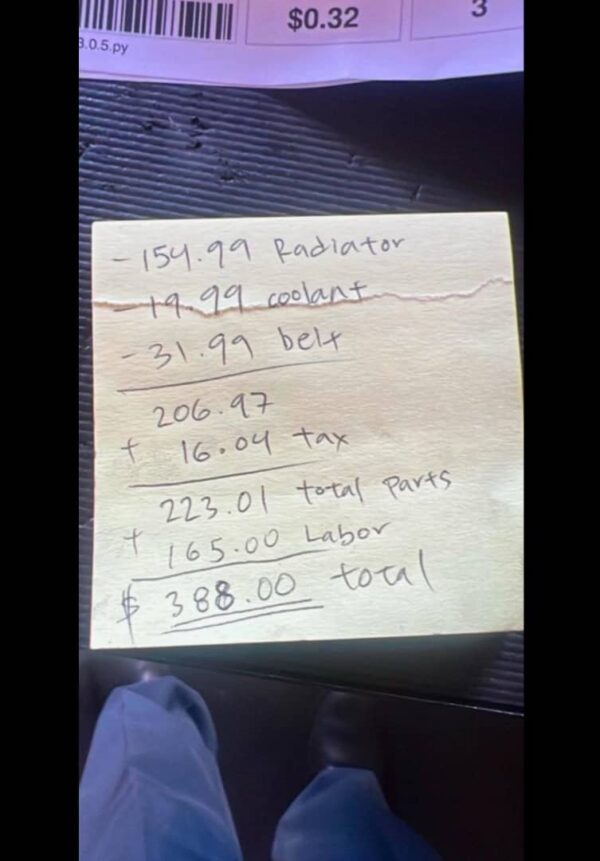 $0.32
3
3.0.5.py
- 154.99 Radiator
- 19.99 coolant
- 31.99 belt
206.97
+ 16.04 tax
223.01 total parts
+ 165.00 Labor
$ 388.00 total